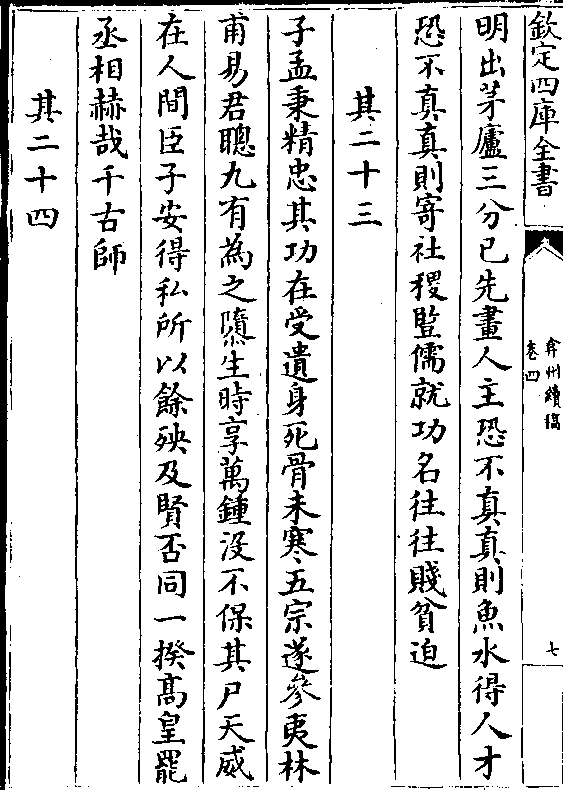 欽定四庫全書
弇州續稿
卷四
七
明出茅廬三分已先畫人主恐不真真則魚水得人才
恐不真真則寄社稷豎儒就功名往往賤貧迫
其二十三
子孟秉精忠其功在受遺身死骨未寒五宗遂參夷林
甫易君聰九有為之隳生時享萬鍾沒不保其尸天威
在人間臣子安得私所以餘殃及賢否同一揆高皇罷
丞相赫哉千古師
其二十四